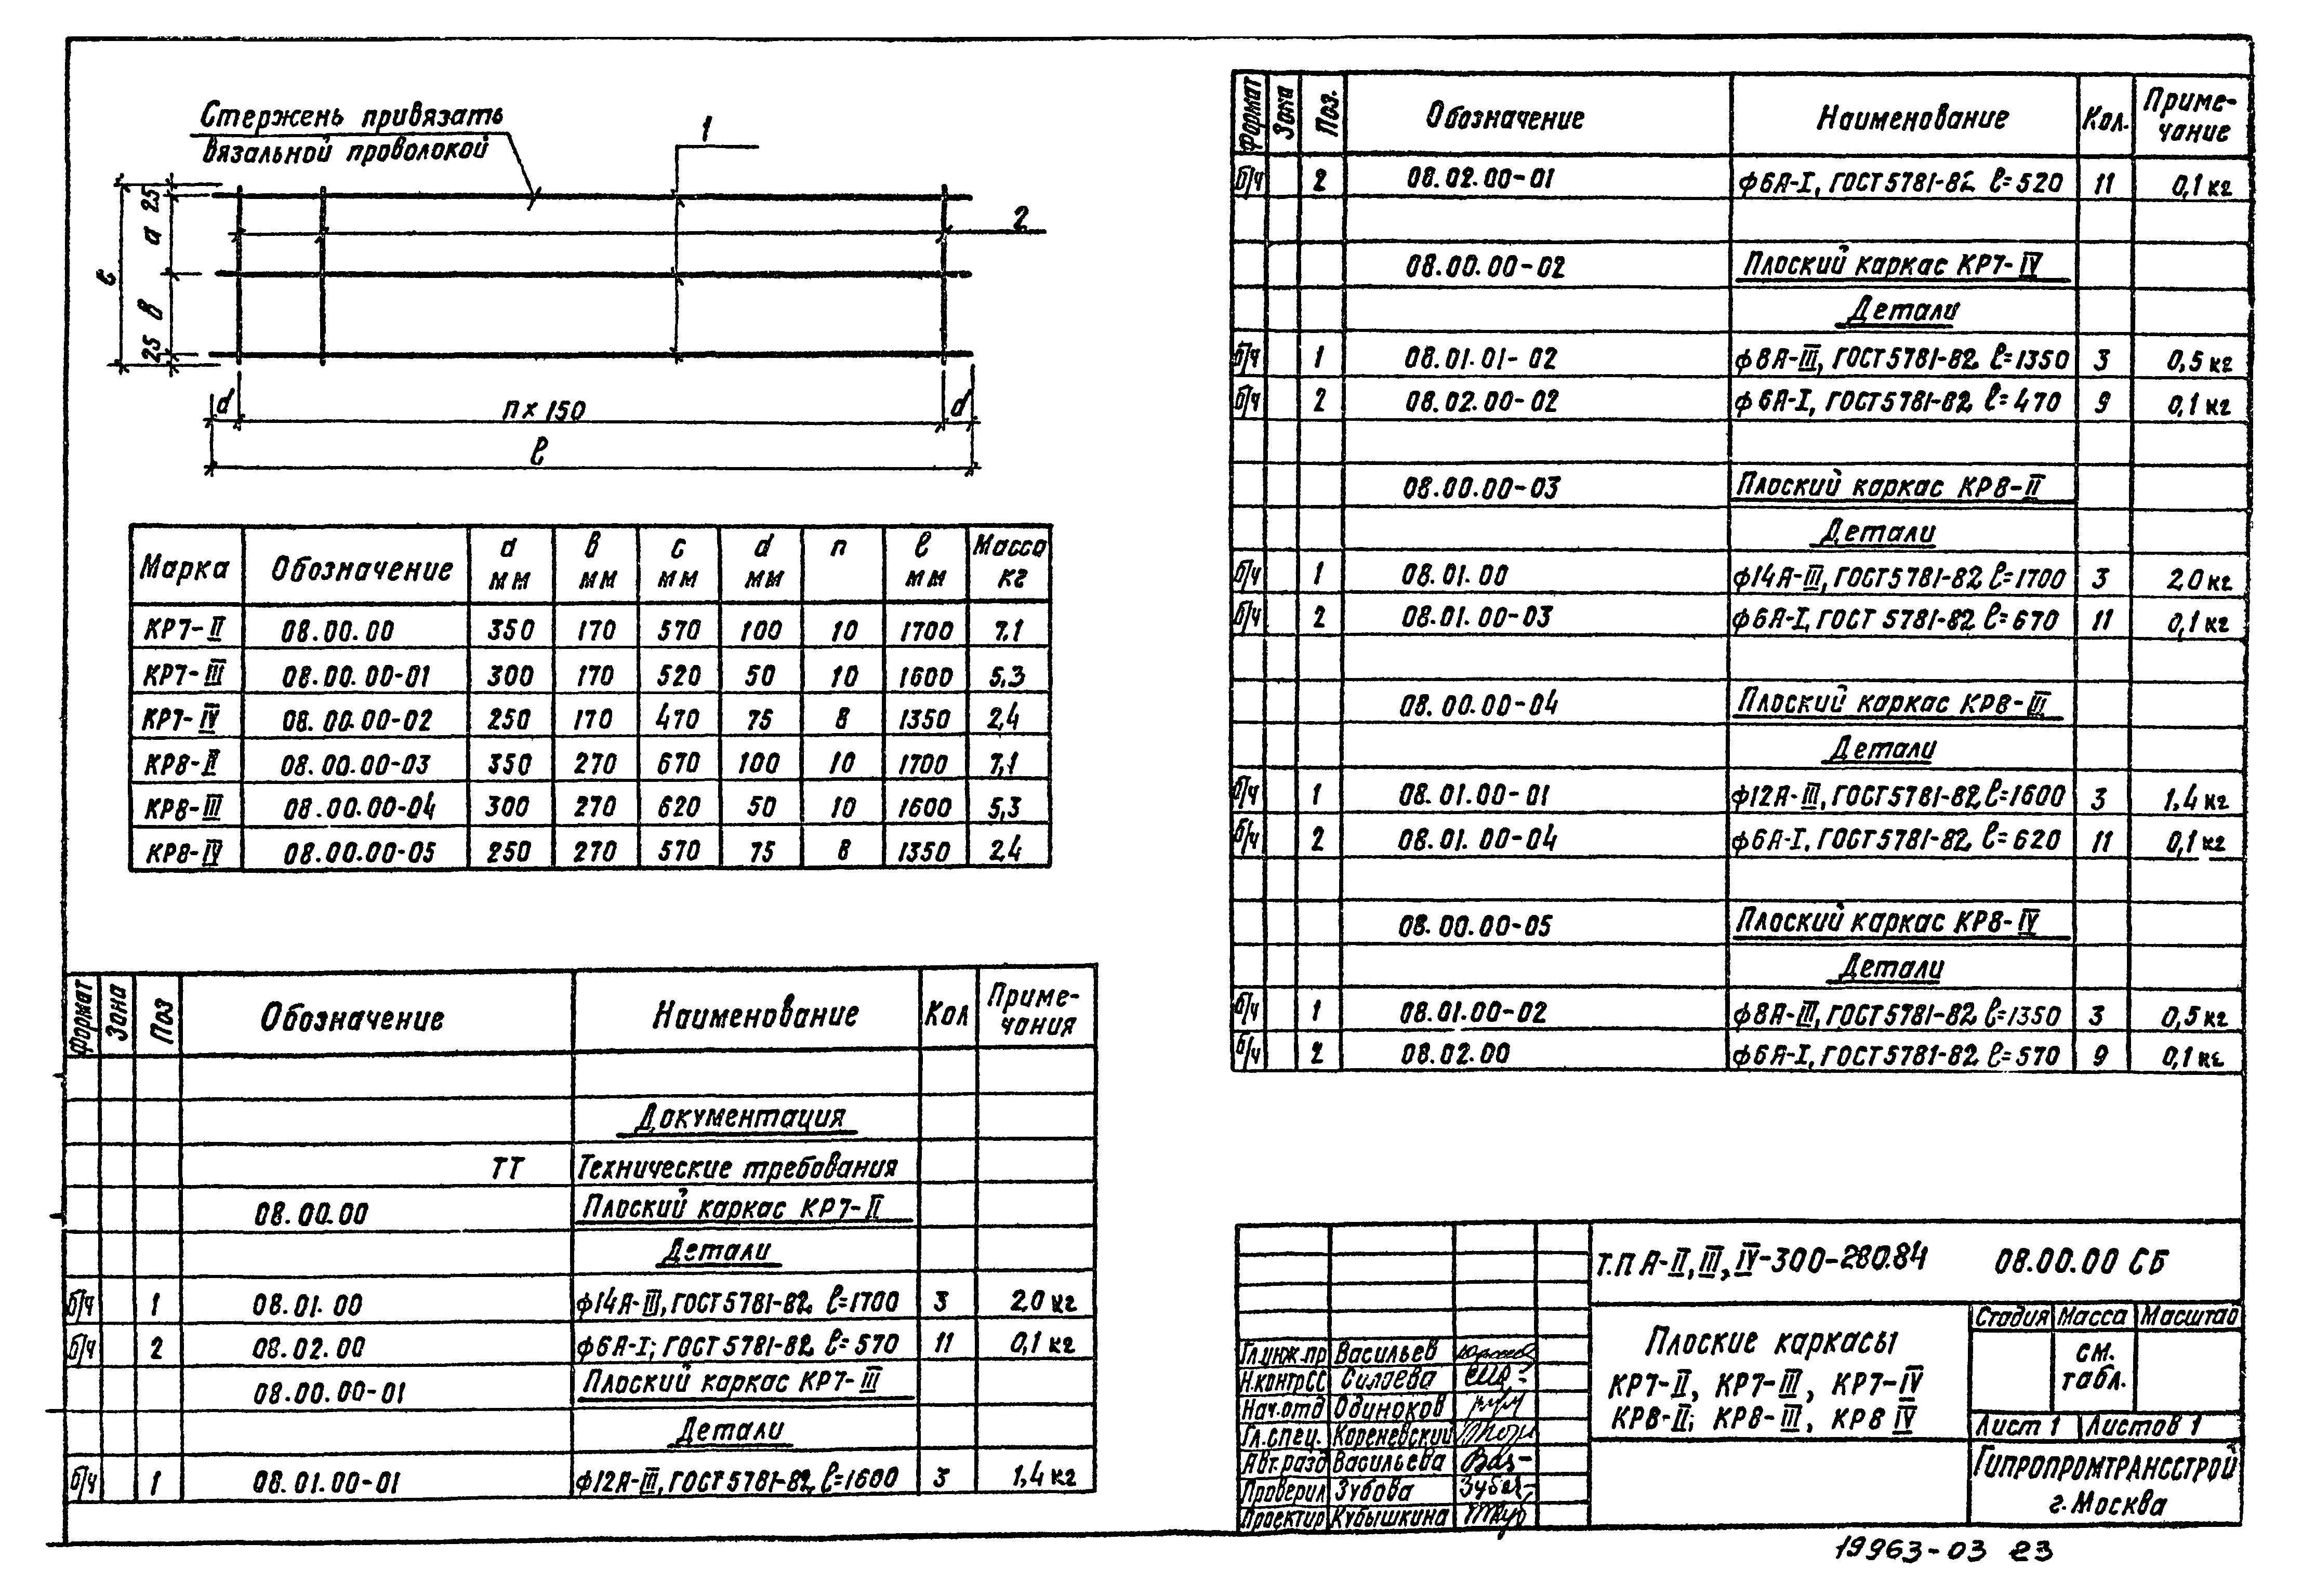 Стержень привязать
вязальной проволокой
1
2
25
а
в
25
с
d
п × 150
d
ℓ
Марка Обозначение а мм в мм с мм d мм п ℓ мм Масса кг
КР7-II 08.00.00 350 170 570 100 10 1700 7,1
КР7-III 08.00.00-01 300 170 520 50 10 1600 5,3
КР7-IV 08.00.00-02 250 170 470 75 8 1350 2,4
КР8-II 08.00.00-03 350 270 670 100 10 1700 7,1
КР8-III 08.00.00-04 300 270 620 50 10 1600 5,3
КР8-IV 08.00.00-05 250 270 570 75 8 1350 2,4
Формат Зона Поз Обозначение Наименование Кол Приме-
чания
Документация
ТТ Технические требования
08.00.00 Плоский каркас КР7-II
Детали
б/ч 1 08.01.00 ф14А-III, ГОСТ 5781-82, ℓ=1700 3 2,0 кг
б/ч 2 08.02.00 ф6А-I; ГОСТ 5781-82 ℓ=570 11 0,1 кг
08.00.00-01 Плоский каркас КР7-III
Детали
б/ч 1 08.01.00-01 ф12А-III, ГОСТ 5781-82, ℓ=1600 3 1,4 кг
Формат Зона Поз. Обозначение Наименование Кол. Приме-
чание
б/ч 2 08.02.00-01 ф6А-I, ГОСТ 5781-82 ℓ=520 11 0,1 кг
08.00.00-02 Плоский каркас КР7-IV
Детали
б/ч 1 08.01.01-02 ф8А-III, ГОСТ 5781-82 ℓ=1350 3 0,5 кг
б/ч 2 08.02.00-02 ф6А-I, ГОСТ 5781-82 ℓ=470 9 0,1 кг
08.00.00-03 Плоский каркас КР8-II
Детали
б/ч 1 08.01.00 ф14А-III, ГОСТ 5781-82 ℓ=1700 3 2,0 кг
б/ч 2 08.01.00-03 ф6А-I, ГОСТ 5781-82 ℓ=670 11 0,1 кг
08.00.00-04 Плоский каркас КР8-III
Детали
б/ч 1 08.01.00-01 ф12А-III, ГОСТ 5781-82, ℓ=1600 3 1,4 кг
б/ч 2 08.01.00-04 ф6А-I, ГОСТ 5781-82, ℓ=620 11 0,1 кг
08.00.00-05 Плоский каркас КР8-IV
Детали
б/ч 1 08.01.00-02 ф8А-III, ГОСТ 5781-82 ℓ=1350 3 0,5 кг
б/ч 2 08.02.00 ф6А-I, ГОСТ 5781-82 ℓ=570 9 0,1 кг
Т.П А-II, III, IV-300-280.84 08.00.00 СБ
Плоские каркасы
КР7-II, КР7-III, КР7-IV
КР8-II; КР8-III, КР8 IV
Стадия Масса Масштаб
см.
табл.
Лист 1 Листов 1
Гипропромтрансстрой
г. Москва
Гл.инж.пр Васильев
Н.контр СС Силаева
Нач.отд Одиноков
Гл.спец. Кореневский
Авт.разд Васильева
Проверил Зубова
Проектир Кубышкина
19963-03 23